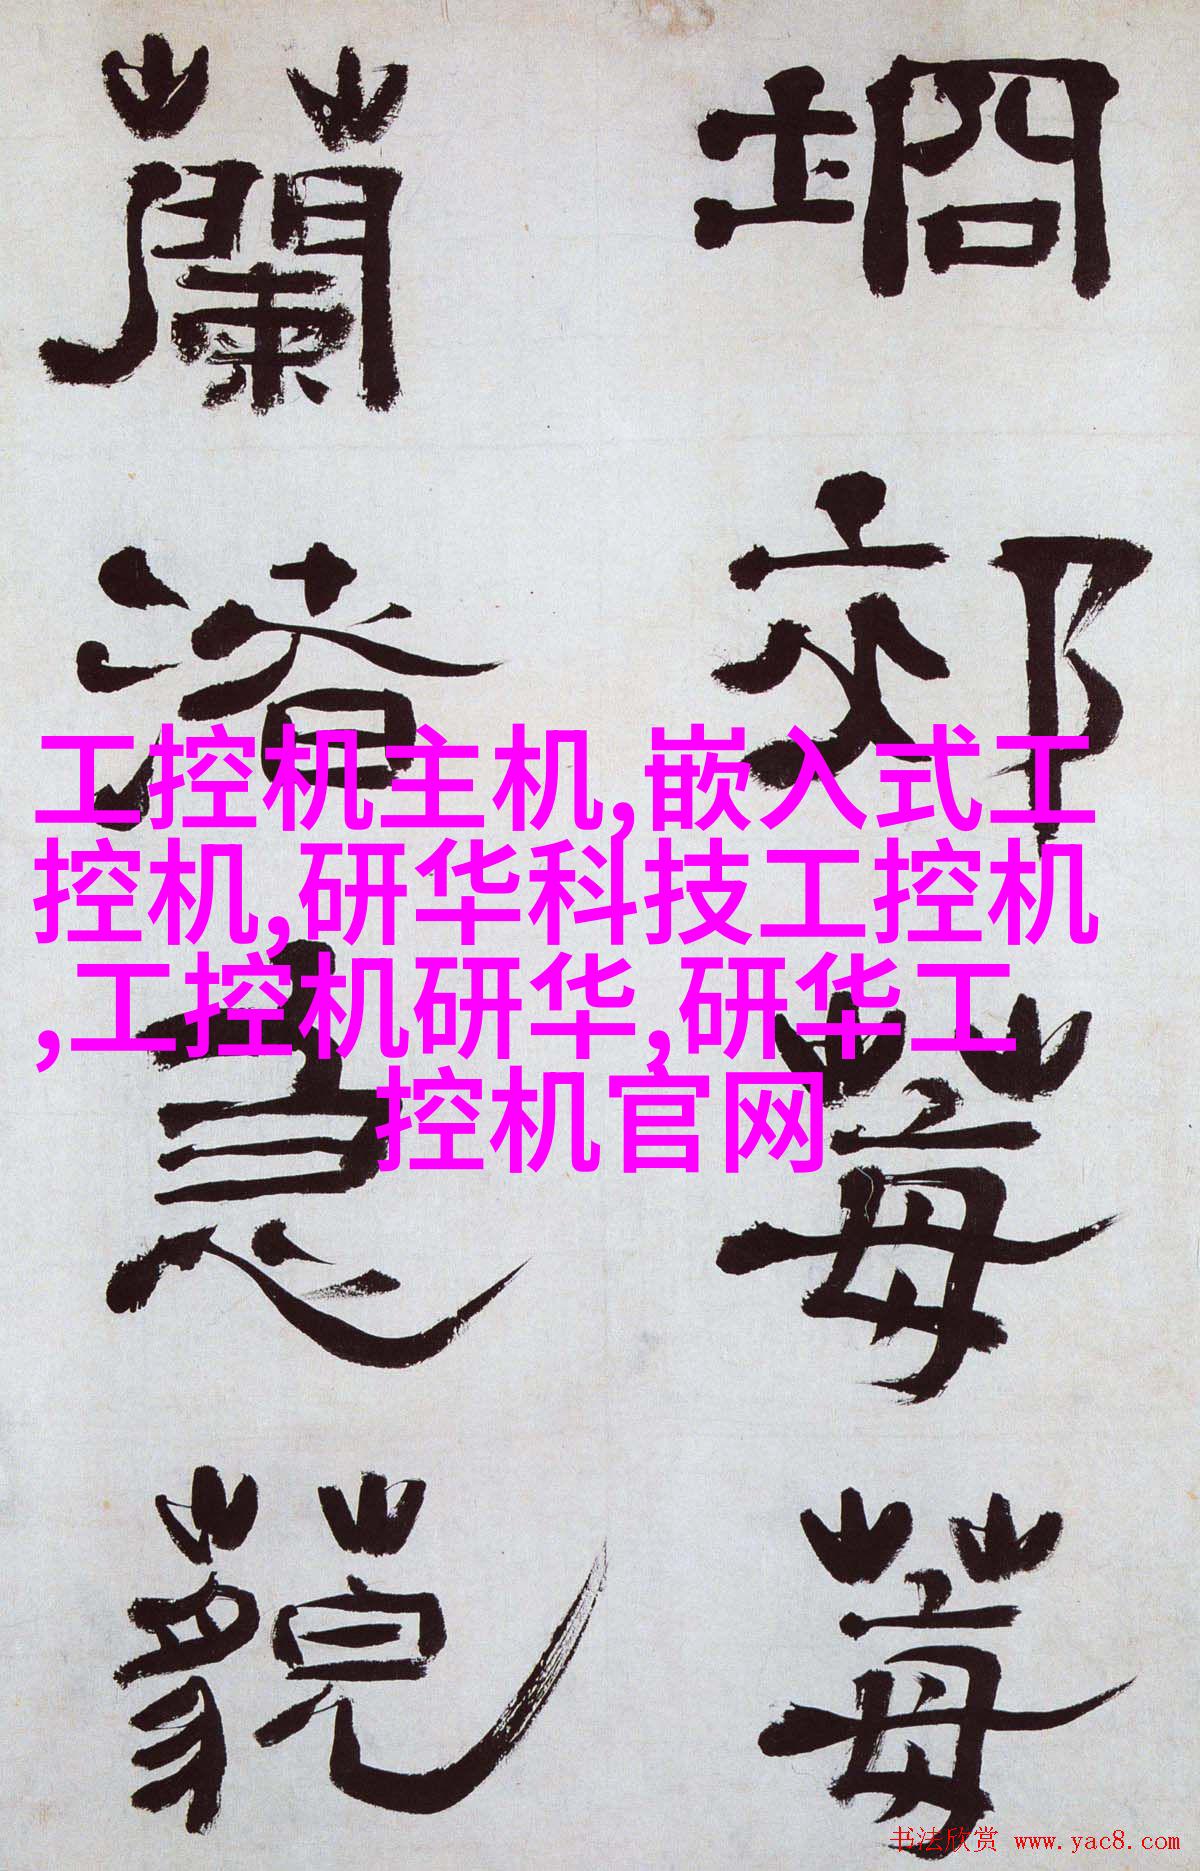 埛郊莓莓
蘭渚急藐
工控机主机,嵌入式工
控机,研华科技工控机
,工控机研华,研华工
控机官网
书法欣赏 www.yac8.com